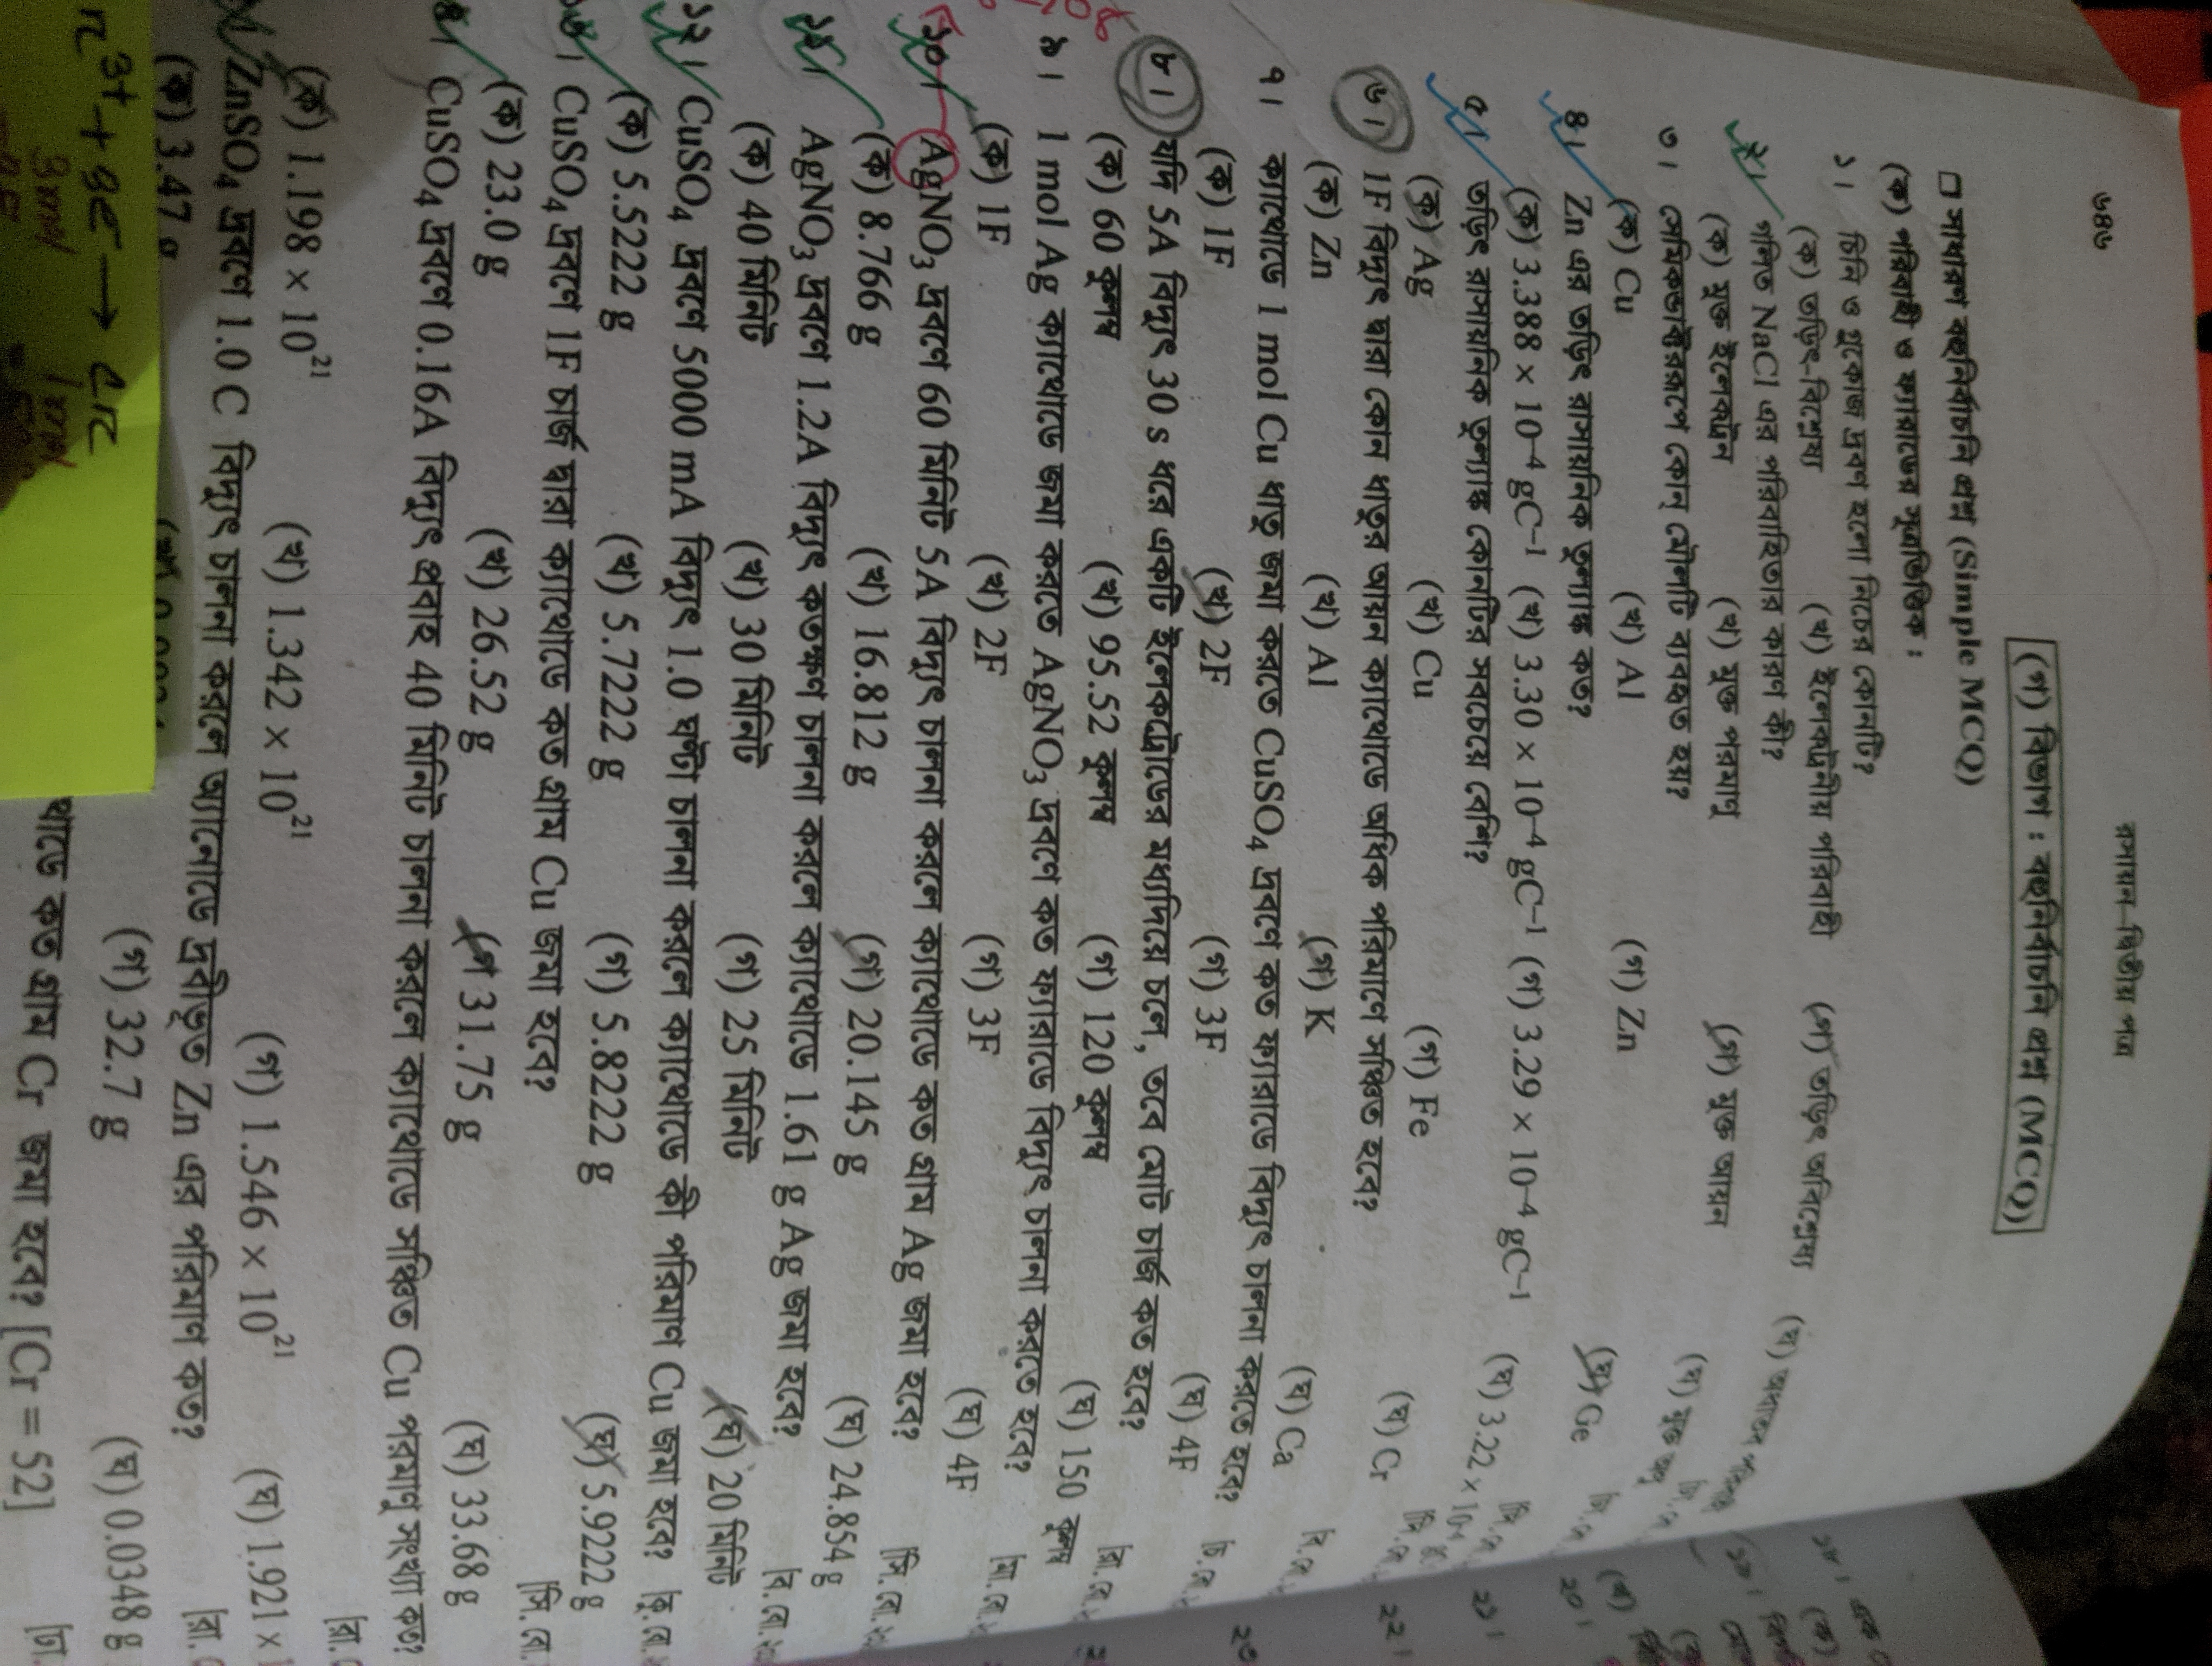 ৬৪৬
রসায়ন-দ্বিতীয় পত্র
(গ) বিভাগ : বহুনির্বাচনি প্রশ্ন (MCQ)
❑ সাধারণ বহুনির্বাচনি প্রশ্ন (Simple MCQ)
(ক) পরিবাহী ও ফ্যারাডের সূত্রভিত্তিক :
১। চিনি ও গ্লুকোজ দ্রবণ হলো নিচের কোনটি?
(ক) তড়িৎ-বিশ্লেষ্য (খ) ইলেকট্রনীয় পরিবাহী (গ) তড়িৎ অবিশ্লেষ্য (ঘ)
২। গলিত NaCl এর পরিবাহিতার কারণ কী?
(ক) মুক্ত ইলেকট্রন (খ) মুক্ত পরমাণু (গ) মুক্ত আয়ন (ঘ) মুক্ত অণু
৩। সেমিকন্ডাক্টররূপে কোন্ মৌলটি ব্যবহৃত হয়?
(ক) Cu (খ) Al (গ) Zn (ঘ) Ge
৪। Zn এর তড়িৎ রাসায়নিক তুল্যাঙ্ক কত?
(ক) 3.388 × 10⁻⁴ gC⁻¹ (খ) 3.30 × 10⁻⁴ gC⁻¹ (গ) 3.29 × 10⁻⁴ gC⁻¹ (ঘ) 3.22 × 10⁻⁴
৫। তড়িৎ রাসায়নিক তুল্যাঙ্ক কোনটির সবচেয়ে বেশি?
(ক) Ag (খ) Cu (গ) Fe (ঘ) Cr
৬। 1F বিদ্যুৎ দ্বারা কোন ধাতুর আয়ন ক্যাথোডে অধিক পরিমাণে সঞ্চিত হবে?
(ক) Zn (খ) Al (গ) K (ঘ) Ca
৭। ক্যাথোডে 1 mol Cu ধাতু জমা করতে CuSO₄ দ্রবণে কত ফ্যারাডে বিদ্যুৎ চালনা করতে হবে?
(ক) 1F (খ) 2F (গ) 3F (ঘ) 4F
৮। যদি 5A বিদ্যুৎ 30 s ধরে একটি ইলেকট্রোডের মধ্যদিয়ে চলে, তবে মোট চার্জ কত হবে?
(ক) 60 কুলম্ব (খ) 95.52 কুলম্ব (গ) 120 কুলম্ব (ঘ) 150 কুলম্ব
৯। 1 mol Ag ক্যাথোডে জমা করতে AgNO₃ দ্রবণে কত ফ্যারাডে বিদ্যুৎ চালনা করতে হবে?
(ক) 1F (খ) 2F (গ) 3F (ঘ) 4F
১০। AgNO₃ দ্রবণে 60 মিনিট 5A বিদ্যুৎ চালনা করলে ক্যাথোডে কত গ্রাম Ag জমা হবে?
(ক) 8.766 g (খ) 16.812 g (গ) 20.145 g (ঘ) 24.854 g
১১। AgNO₃ দ্রবণে 1.2A বিদ্যুৎ কতক্ষণ চালনা করলে ক্যাথোডে 1.61 g Ag জমা হবে?
(ক) 40 মিনিট (খ) 30 মিনিট (গ) 25 মিনিট (ঘ) 20 মিনিট
১২। CuSO₄ দ্রবণে 5000 mA বিদ্যুৎ 1.0 ঘণ্টা চালনা করলে ক্যাথোডে কী পরিমাণ Cu জমা হবে?
(ক) 5.5222 g (খ) 5.7222 g (গ) 5.8222 g (ঘ) 5.9222 g
১৩। CuSO₄ দ্রবণে 1F চার্জ দ্বারা ক্যাথোডে কত গ্রাম Cu জমা হবে?
(ক) 23.0 g (খ) 26.52 g (গ) 31.75 g (ঘ) 33.68 g
CuSO₄ দ্রবণে 0.16A বিদ্যুৎ প্রবাহ 40 মিনিট চালনা করলে ক্যাথোডে সঞ্চিত Cu পরমাণু সংখ্যা কত?
(ক) 1.198 × 10²¹ (খ) 1.342 × 10²¹ (গ) 1.546 × 10²¹ (ঘ) 1.921 ×
ZnSO₄ দ্রবণে 1.0 C বিদ্যুৎ চালনা করলে অ্যানোডে দ্রবীভূত Zn এর পরিমাণ কত?
(ক) 3.47 g (গ) 32.7 g (ঘ) 0.0348 g
থোডে কত গ্রাম Cr জমা হবে? [Cr = 52]
3+ + 3e⁻ → Cr
3 mol 1 mol